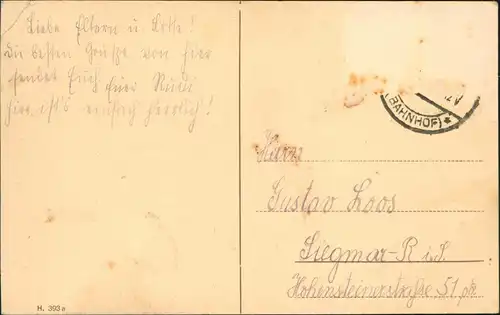 Liebe Eltern u. Lotte!
Die besten Grüsse von hier
sendet Euch Euer Rudi
hier ist's einfach herrlich!
(BAHNHOF) *
12 V
Herrn
Gustav Loos
Siegmar-R i. S.
Hohensteinerstraße 51 pt.
H. 393a